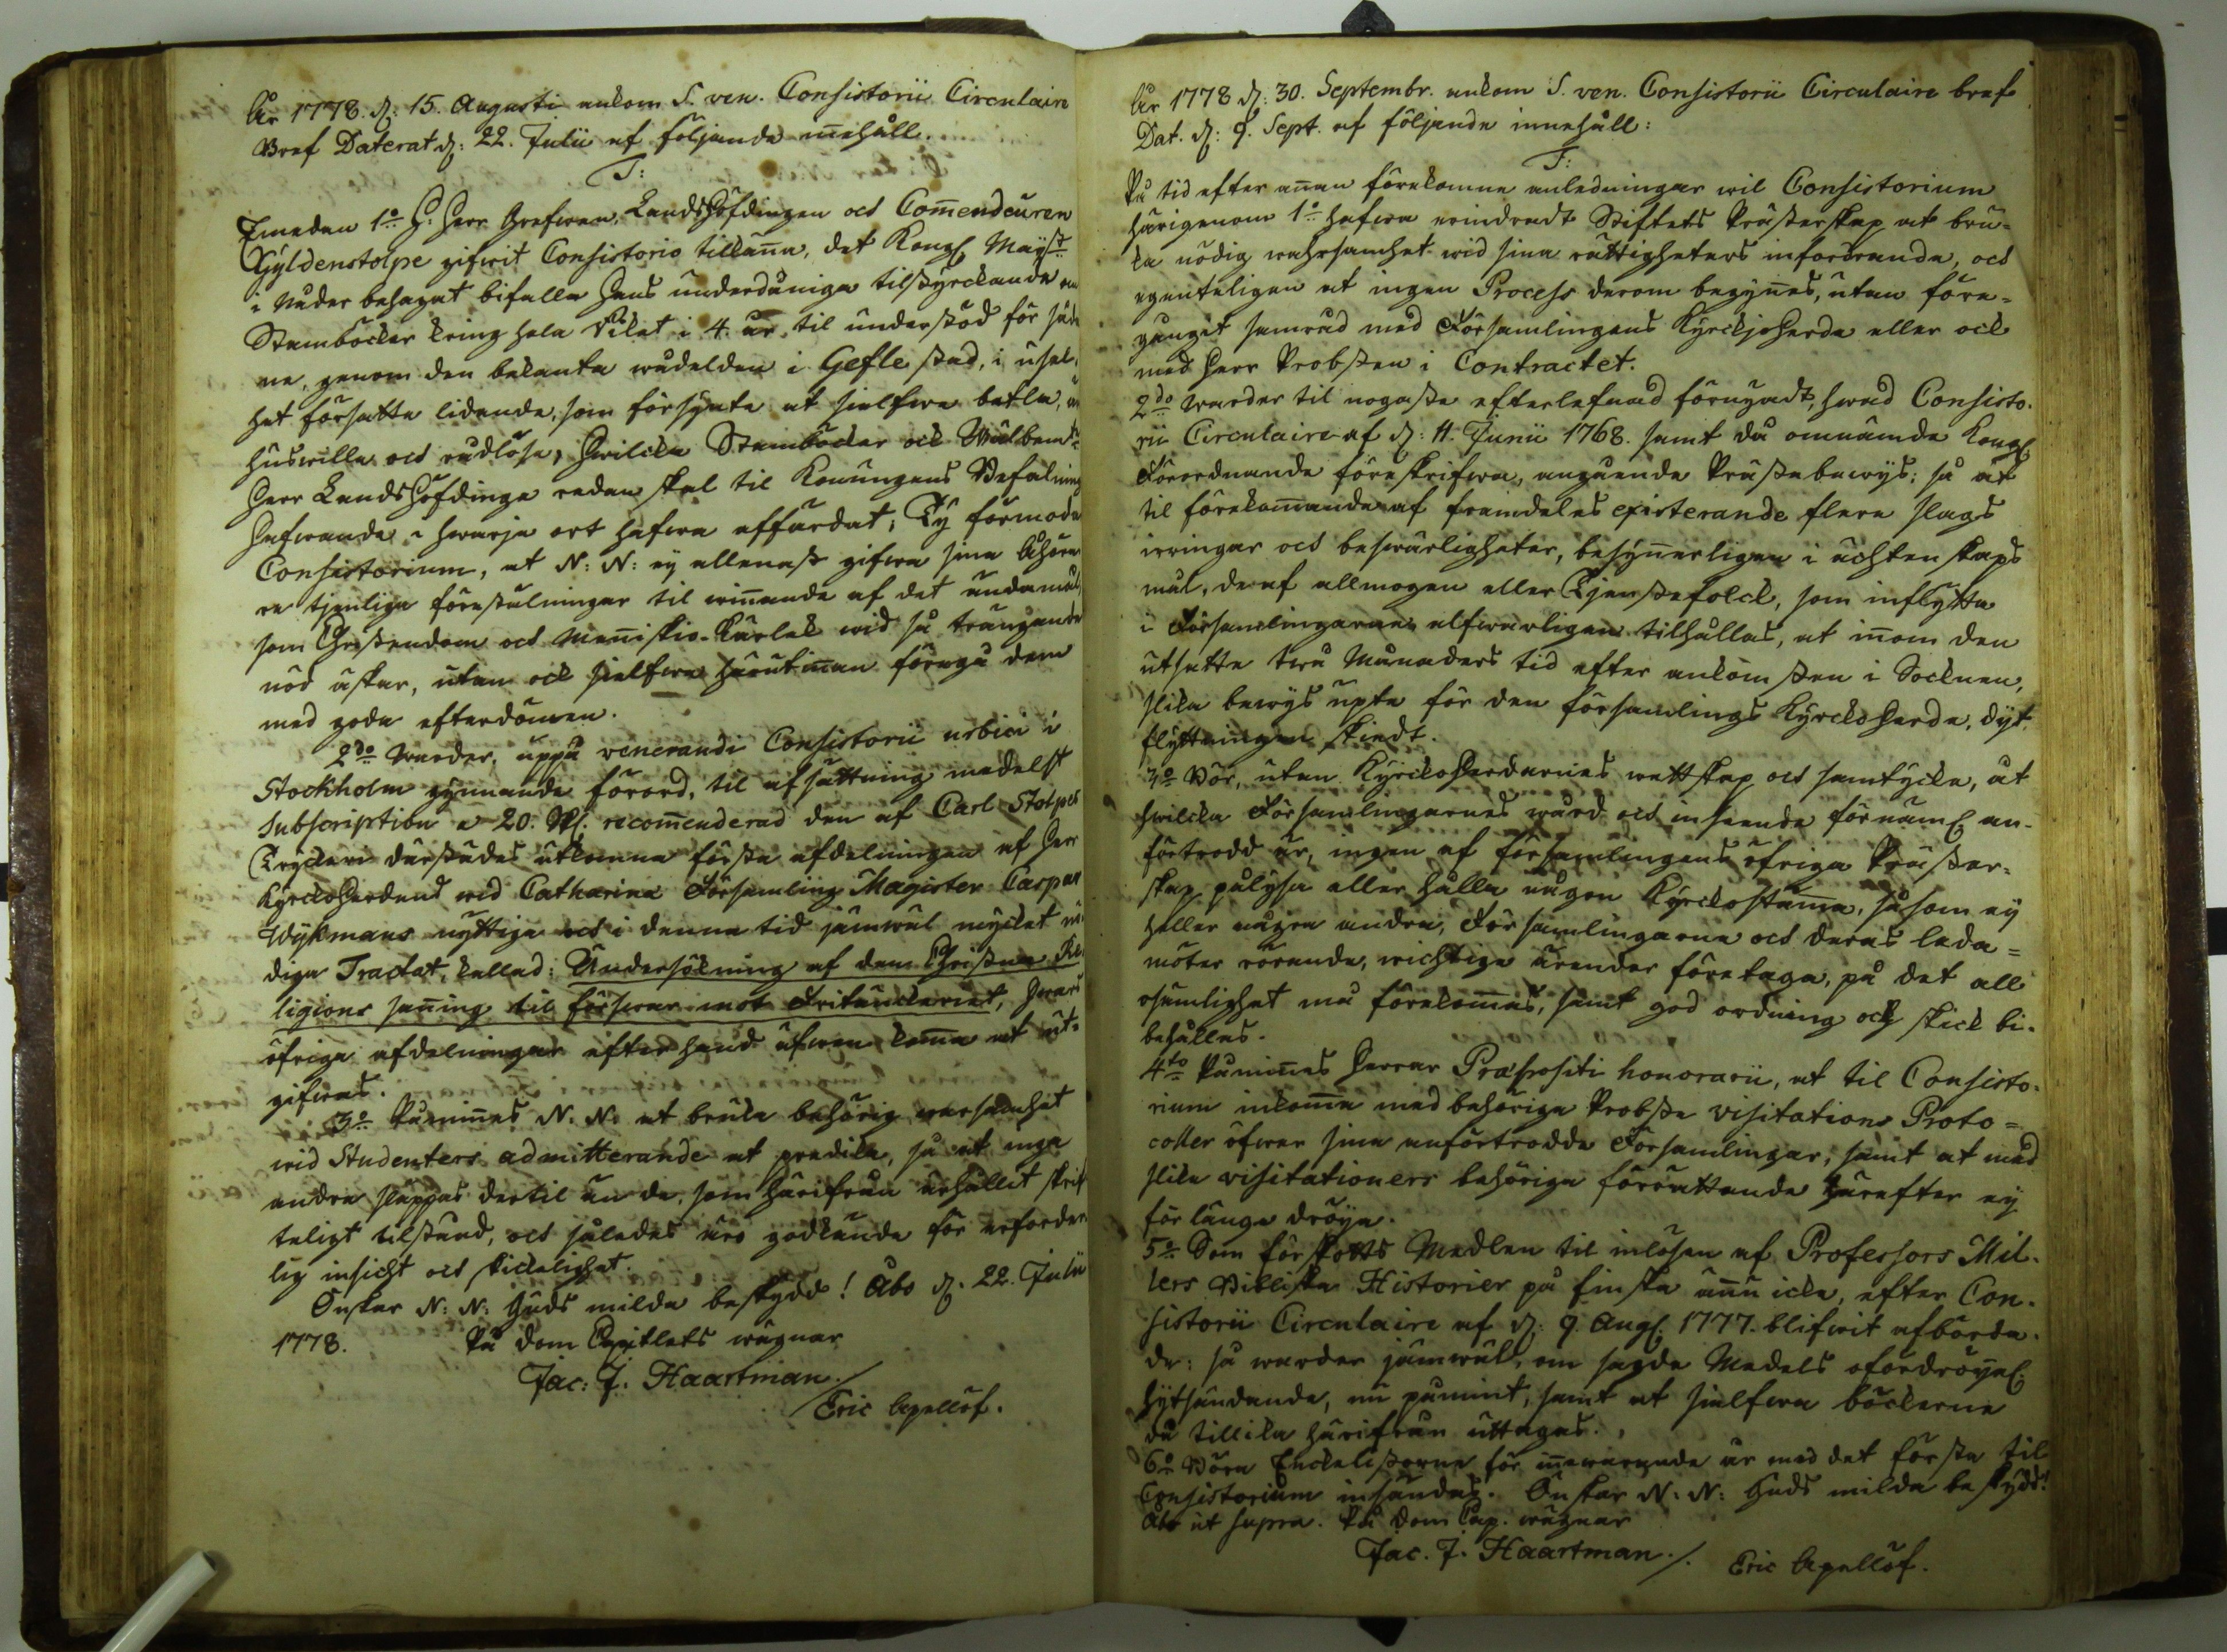 År 1778. d: 15. Augusti ankom S. ven. Consistorii Circulaire
Bref Daterat d: 22. Julii af följande inehåll.
T:
Emedan 1:o H: Herr Grefwen Landshöfdingen och Comendeuren
Gyldenstolpe gifwit Consistorio tilkäna, det Kongl. Mayst
i Nåder behagat bifalla hans underdåniga tilstyrckande om
Stamböcker kring hela Riket i 4. år, til understöd för såda
ne, genom den bekanta wådelden i Gefle stad, i usel-
het försatte lidande, som försynte at sielfwe betla,
huswilla och rådlösa, hwilcka Stamböcker ock Wälbemte
Herr Landshöfdinge redan skal til Konungens Befalning
hafwande i hwarja ort hafwa affärdat; Ty förmoda
Consistorium, at N: N: ej allenast gifwa sina Åhöra
re tjenliga föreställningar til winande af det ändamål
som Christendom och Meniskio-Kärlek wid så trängande
nöd äskar, utan ock sielfwe härutinnan föregå dem
med goda efterdömen.
2:do Warder, uppå venerandi Consistorii urbici i
Stockholm gynnande förord, til afsättning medelst
Subscription a 20. Rf. recomenderad den af Carl Stolpes
Tryckeri därstädes utkomna första afdelningen af Herr
Kyrckoherdens wid Catharina Församling Magister Caspar
Wijkmans nyttiga och i denna tid jämwäl mycket nö
diga Tractat, kallad: Undersökning af dem Christna Re-
ligions saning til förswar mot Fritänckeriet, hwars
öfriga afdelningar efterhand äfwen koma at ut-
gifwas.
3:o Påminnes N. N. at bruka behörig warsamhet
wid Studenters admitterande at predika, så at inga
andra släppas dertil än de, som härifrån erhållit skrif
teligt tilstånd, och således äro godkände för erforder
lig insicht och skickelighet.
Önskar N: N: Guds milda beskydd! Åbo d. 22. Julii
1778. På Dom Capitlets wägnar
Jac: J. Haartman./
Eric Apellöf.
År 1778 d: 30. Septembr. ankom S. ven. Consistorii Circulaire bref
Dat. d: 9. Sept. af följande innehåll:
T:
På tid efter anan förekomne anledningar wil Consistorium
härigenom 1:o hafwa erindradt Stiftets Prästerskap at bru-
ka nödig warsamhet wid sina rättigheters infordrande, och
egenteligen at ingen Process derom begynes, utan före-
gånget samråd med Församlingens Kyrckjoherde eller ock
med Herr Probsten i Contractet.
2:do Warder til nogaste efterlefnad förnyadt, hwad Consisto-
rii Circulaire af d: 11. Junii 1768. samt då omnämde Kongl.
Förordnande föreskrifwa, angående Prästabewys; så at
til förekomande af framdeles existerande flera slags
irringar och beswärligheter, besynnerligen i ächtenskaps
mål, de af allmogen eller Tjenstefolck, som inflytta
i Församlingarne alfwarligen tilhållas, at inom den
utsatte twå Månaders tid efter ankomsten i Socknen,
slika bewys upte för den församlings Kyrckoherde, dyt
flyttningen skiedt.
3:o Bör, utan Kyrckoherdarnes wettskap och samtycke, åt
hwilcka Församlingarnes wård och inseende förnäml. an-
förtrodd är, ingen af församlingens öfriga Präster-
skap pålysa eller hålla någon Kyrckostäma, såsom ej
heller några andra, Församlingarne och deras leda-
möter rörande, wichtiga ärender företaga, på det all
osämlighet må förekomas, samt god ordning och skick bi-
behålles.
4:to Påminnes Herrar Præpositi honorarii, at til Consisto-
rium inkoma med behöriga Probste visitations Proto-
coller öfwer sina anförtrodde Församlingar, samt at med
slika visitationers behöriga förrättande härefter ej
för länge dröja.
5:o Som förskotts Medlen til inlösen af Professors Mil-
lers Bibliska Historier på finska ännu icke, efter Con-
sistorii Circulaire af d: 9. Aug. 1777. blifwit afbörda-
de: så warder jämwäl, om sagde Medels ofördröyel.
hytsändande, nu påmint, samt at sielfwa böckerne
då tillika härifrån uttagas.
6:o Böra Enckelistorne för inewarande år med det första til
Consistorium insändas. Önskar N. N: Guds milda beskydd!
Åbo ut supra. På Dom Cap. wägnar
Jac. J. Haartman./. Eric Apellöf.